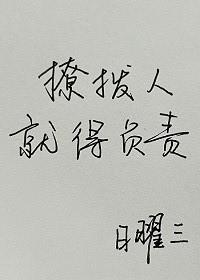 撩拨人
就得负责
日曜三